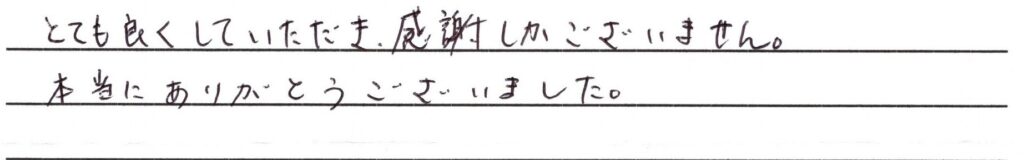 とても良くしていただき、感謝しかございません。
本当にありがとうございました。